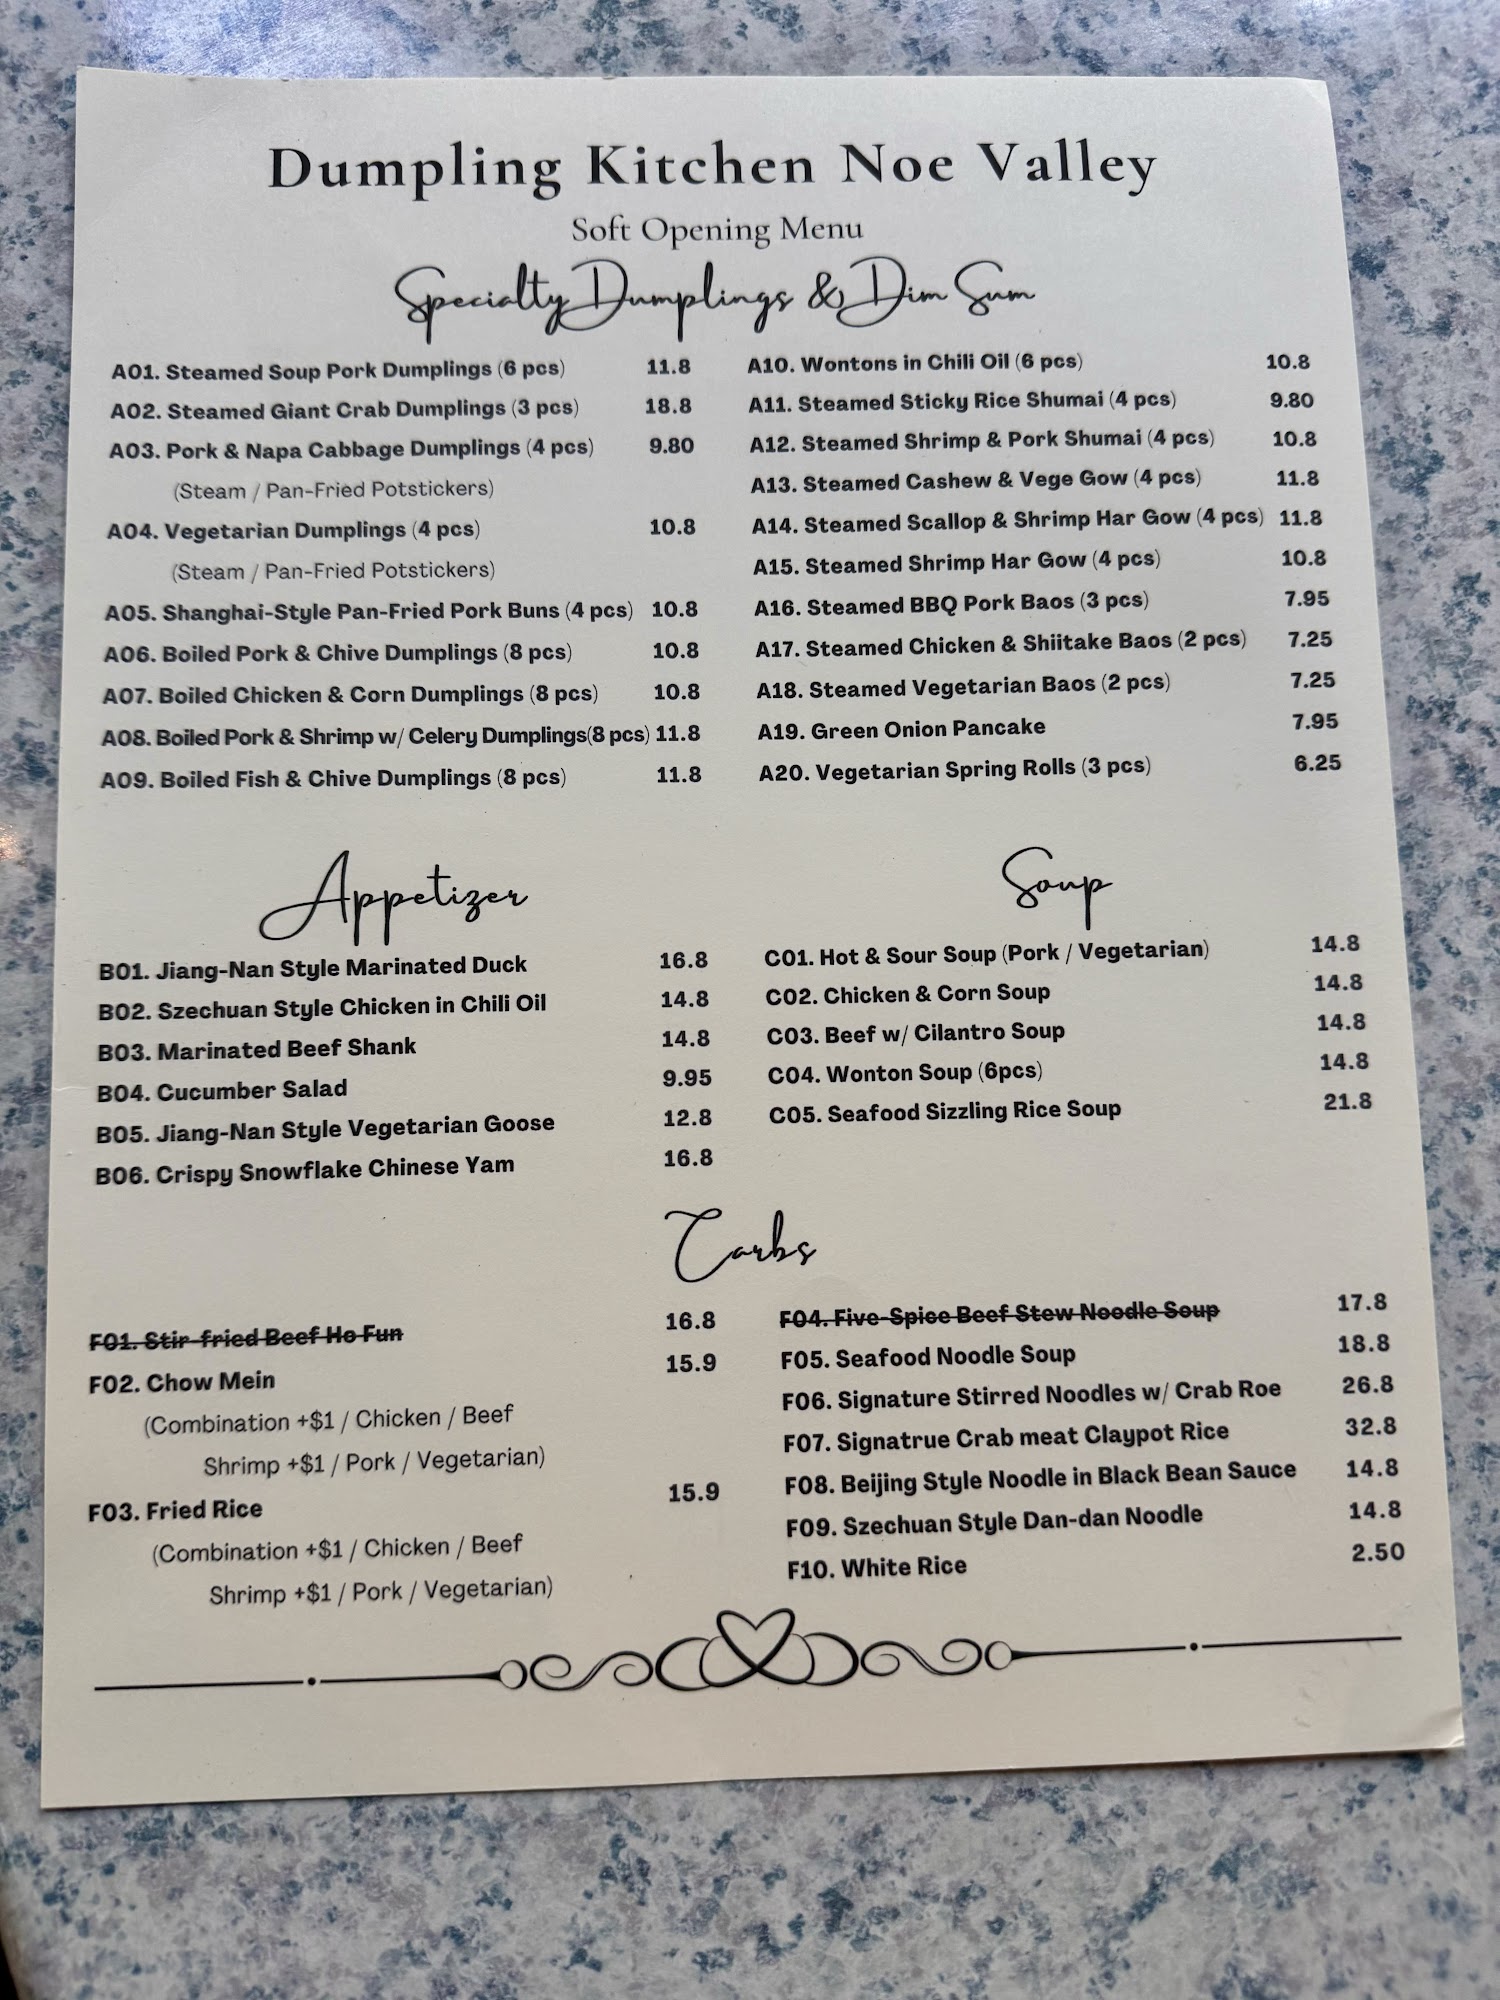 Dumpling Kitchen Noe Valley
Soft Opening Menu
Specialty Dumplings & Dim Sum
A01. Steamed Soup Pork Dumplings (6 pcs) 11.8
A02. Steamed Giant Crab Dumplings (3 pcs) 18.8
A03. Pork & Napa Cabbage Dumplings (4 pcs) 9.80
(Steam / Pan-Fried Potstickers)
A04. Vegetarian Dumplings (4 pcs) 10.8
(Steam / Pan-Fried Potstickers)
A05. Shanghai-Style Pan-Fried Pork Buns (4 pcs) 10.8
A06. Boiled Pork & Chive Dumplings (8 pcs) 10.8
A07. Boiled Chicken & Corn Dumplings (8 pcs) 10.8
A08. Boiled Pork & Shrimp w/ Celery Dumplings(8 pcs) 11.8
A09. Boiled Fish & Chive Dumplings (8 pcs) 11.8
A10. Wontons in Chili Oil (6 pcs) 10.8
A11. Steamed Sticky Rice Shumai (4 pcs) 9.80
A12. Steamed Shrimp & Pork Shumai (4 pcs) 10.8
A13. Steamed Cashew & Vege Gow (4 pcs) 11.8
A14. Steamed Scallop & Shrimp Har Gow (4 pcs) 11.8
A15. Steamed Shrimp Har Gow (4 pcs) 10.8
A16. Steamed BBQ Pork Baos (3 pcs) 7.95
A17. Steamed Chicken & Shiitake Baos (2 pcs) 7.25
A18. Steamed Vegetarian Baos (2 pcs) 7.25
A19. Green Onion Pancake 7.95
A20. Vegetarian Spring Rolls (3 pcs) 6.25
Appetizer
B01. Jiang-Nan Style Marinated Duck 16.8
B02. Szechuan Style Chicken in Chili Oil 14.8
B03. Marinated Beef Shank 14.8
B04. Cucumber Salad 9.95
B05. Jiang-Nan Style Vegetarian Goose 12.8
B06. Crispy Snowflake Chinese Yam 16.8
Soup
C01. Hot & Sour Soup (Pork / Vegetarian) 14.8
C02. Chicken & Corn Soup 14.8
C03. Beef w/ Cilantro Soup 14.8
C04. Wonton Soup (6pcs) 14.8
C05. Seafood Sizzling Rice Soup 21.8
Carbs
F01. Stir-fried Beef Ho Fun 16.8
F02. Chow Mein 15.9
(Combination +$1 / Chicken / Beef
Shrimp +$1 / Pork / Vegetarian)
F03. Fried Rice 15.9
(Combination +$1 / Chicken / Beef
Shrimp +$1 / Pork / Vegetarian)
F04. Five-Spice Beef Stew Noodle Soup 17.8
F05. Seafood Noodle Soup 18.8
F06. Signature Stirred Noodles w/ Crab Roe 26.8
F07. Signatrue Crab meat Claypot Rice 32.8
F08. Beijing Style Noodle in Black Bean Sauce 14.8
F09. Szechuan Style Dan-dan Noodle 14.8
F10. White Rice 2.50